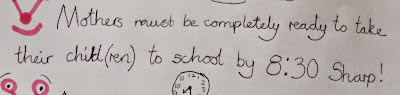 Mothers must be completely ready to take
their child(ren) to school by 8:30 Sharp!